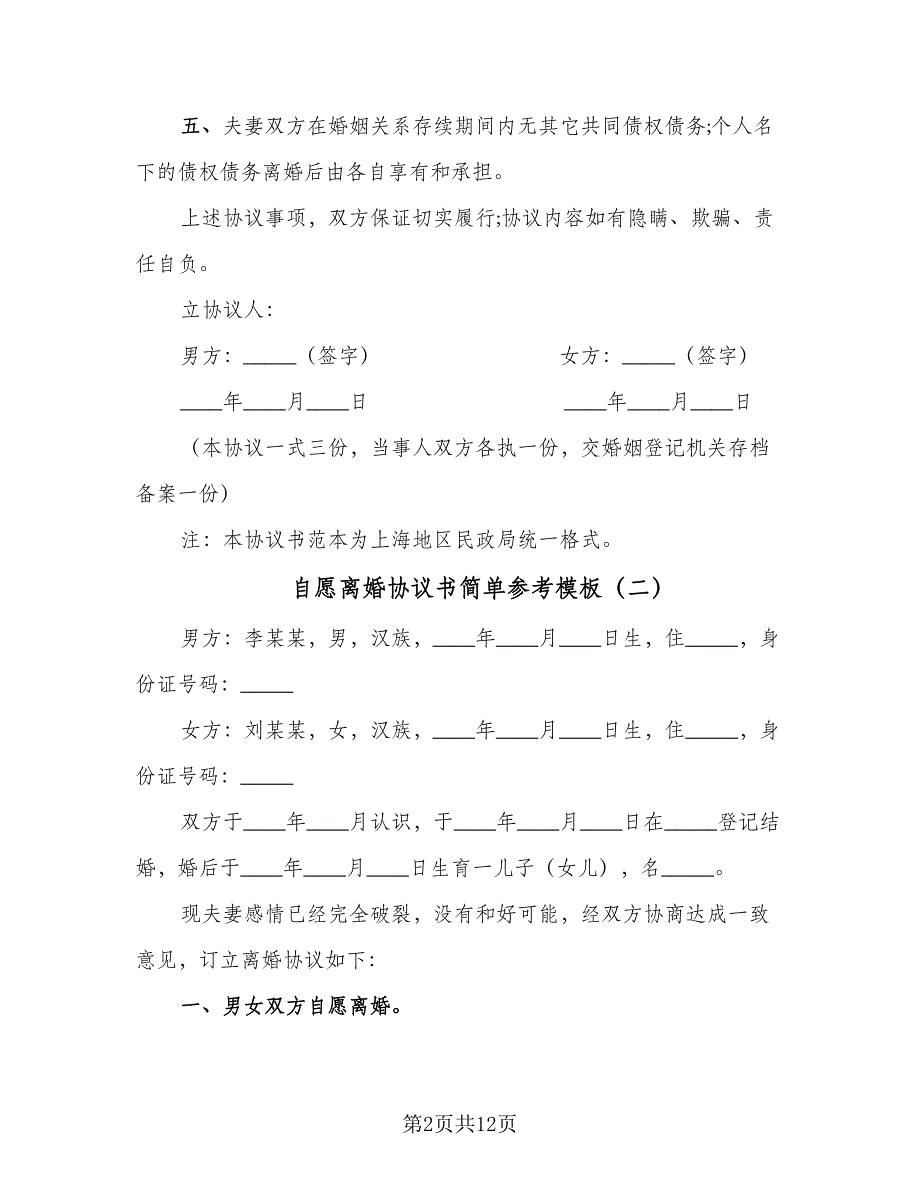 五、夫妻双方在婚姻关系存续期间内无其它共同债权债务;个人名
下的债权债务离婚后由各自享有和承担。
上述协议事项，双方保证切实履行;协议内容如有隐瞒、欺骗、责
任自负。
立协议人：
男方：_____（签字） 女方：_____（签字）
____年____月____日 ____年____月____日
（本协议一式三份，当事人双方各执一份，交婚姻登记机关存档
备案一份）
注：本协议书范本为上海地区民政局统一格式。
自愿离婚协议书简单参考模板（二）
男方：李某某，男，汉族，____年____月____日生，住_____，身
份证号码：_____
女方：刘某某，女，汉族，____年____月____日生，住_____，身
份证号码：_____
双方于____年____月认识，于____年____月____日在_____登记结
婚，婚后于____年____月____日生育一儿子（女儿），名_____。
现夫妻感情已经完全破裂，没有和好可能，经双方协商达成一致
意见，订立离婚协议如下：
一、男女双方自愿离婚。
第2页共12页